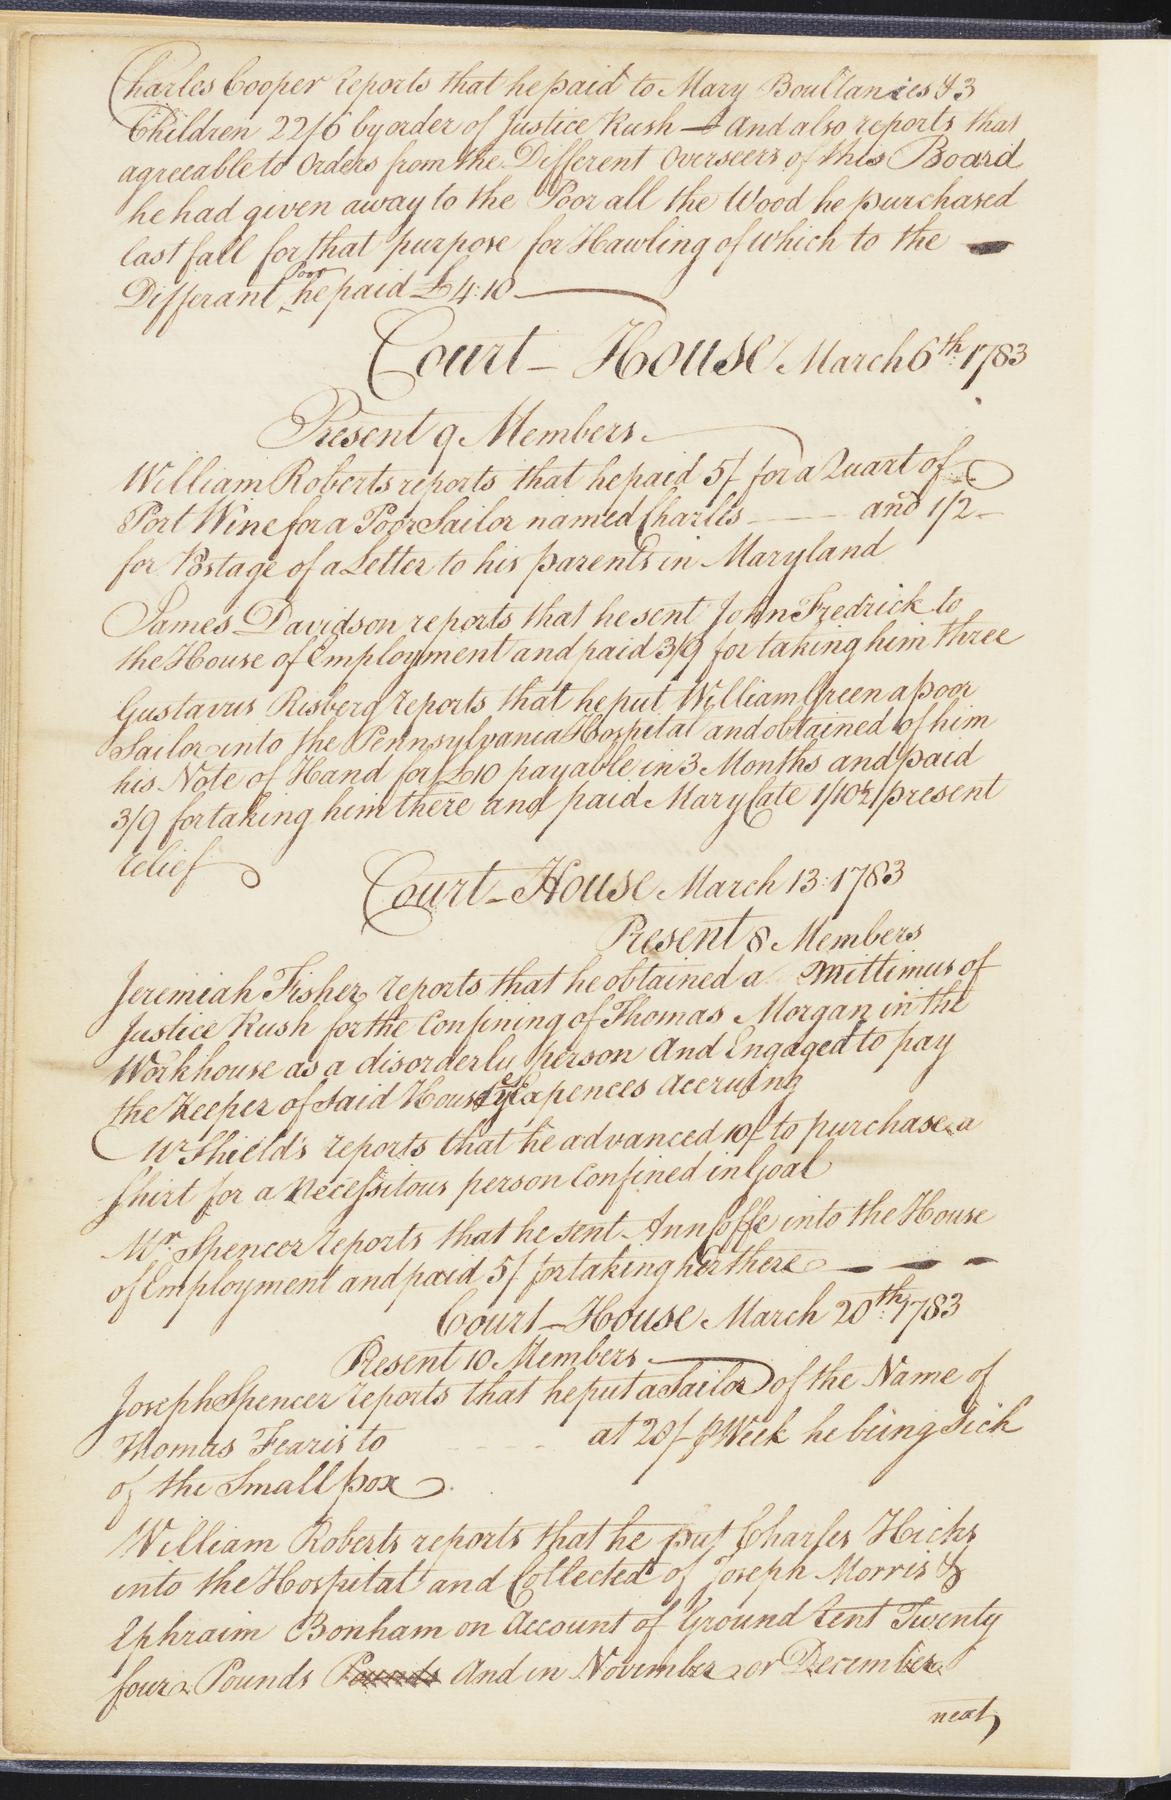 Charles Cooper reports that he paid to Mary Boullanies & 3
Children 22/6 by order of Justice Rush — And also reports that
agreeable to Orders from the Different Overseers of this Board
he had given away to the Poor all the Wood he purchased
last fall for that purpose for Hawling of which to the —
Differant Poor he paid £4:10 —
Court - House March 6th. 1783
Present 9 Members
William Roberts reports that he paid 5/ for a Quart of
Port Wine for a Poor Sailor named Charles —— and 1/2
for Postage of a Letter to his parents in Maryland
James Davidson reports that he sent John Fredrick to
the House of Employment and paid 3/9 for taking him three
Gustavus Risberg reports that he put William Green a poor
Sailor into the Pennsylvania Hospital and obtained of him
his Note of Hand for £10 payable in 3 Months and paid
3/9 for taking him there and paid Mary Cate 1/10½ present
relief
Court - House March 13: 1783
Present 8 Members
Jeremiah Fisher reports that he obtained a Mittimus of
Justice Rush for the Confining of Thomas Morgan in the
Workhouse as a disorderly person And Engaged to pay
the Keeper of said House ye Expences accruing
Mr Shields reports that he advanced 10/ to purchase a
Shirt for a Necessitous person Confined in Goal
Mr. Spencer reports that he sent Ann Coffe into the House
of Employment and paid 5/ for taking her there — — —
Court - House March 20th. 1783
Present 10 Members
Joseph Spencer reports that he put a Sailor of the Name of
Thomas Fearis to - - - at 20/ ⅌ Week he being Sick
of the Small pox
William Roberts reports that he put Charles Hicks
into the Hospital and Collected of Joseph Morris &
Ephraim Bonham on Account of Ground Rent Twenty
four Pounds Pounds And in November or December
next